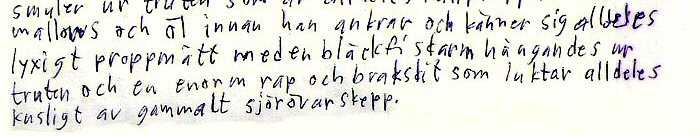 smuler ur truten som
mallows och öl innan han ankrar och känner sig alldeles
lyxigt proppmätt med en bläckfiskarm hängandes ur
truten och en enorm rap och brakskit som luktar alldeles
kusligt av gammalt sjörövarskepp.